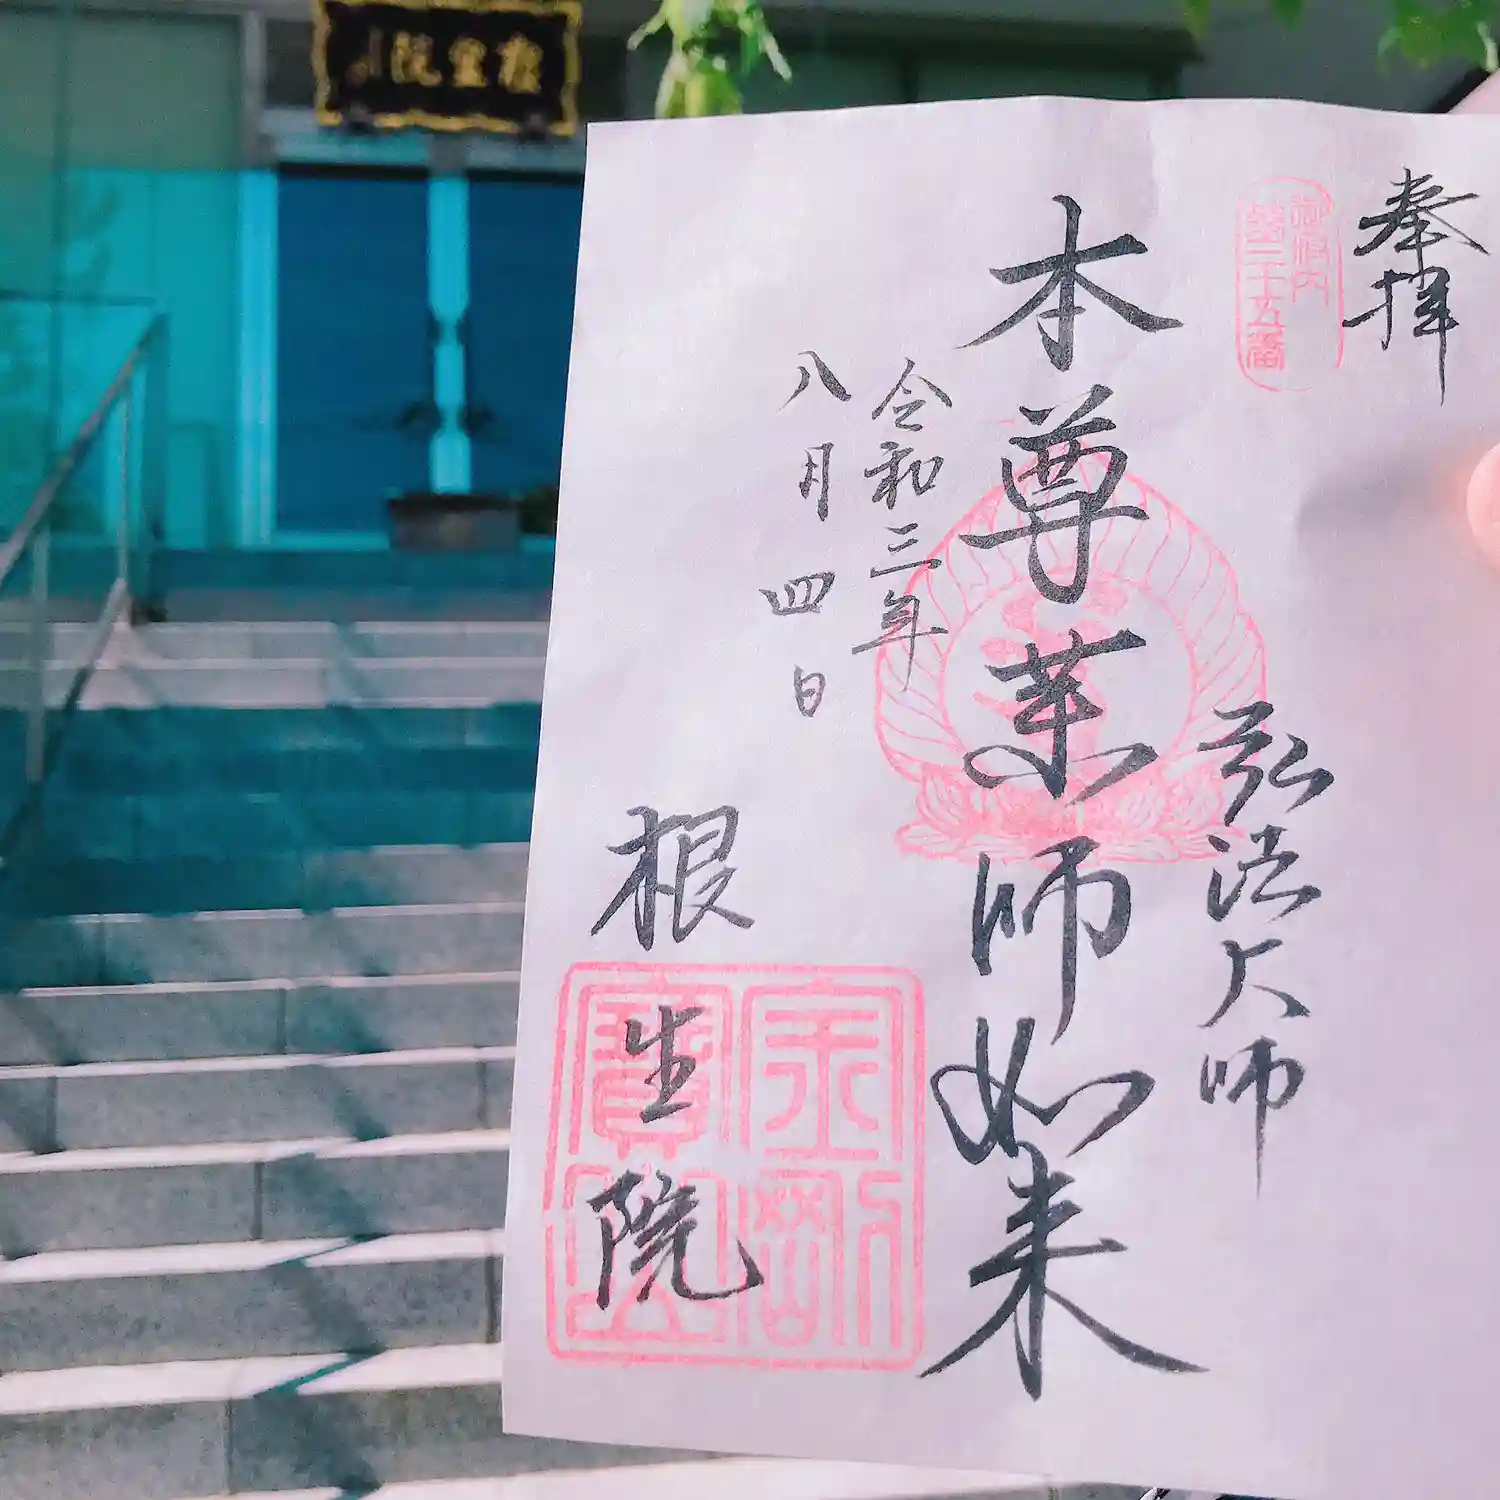 根生院
奉拝
御府内
第三十五番
弘法大師
本尊薬師如来
令和三年
八月四日
根生院
金剛
寶